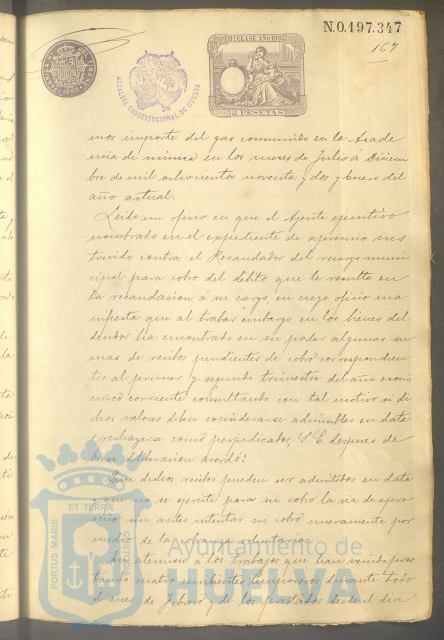 N.0.197.347
167
11ª CLASE AÑO 1893
2 PESETAS
ALCALDIA CONSTITUCIONAL DE HUELVA
mos importe del gas consumido en la Acade
mia de musica en los meses de Julio á Diciem
bre de mil ochocientos noventa y dos y Enero del
año actual.
Leido un oficio en que el Agente ejecutivo
nombrado en el expediente de apremio ins
truido contra el Recaudador del recargo muni
cipal para cobro del débito que le resulta en
la recaudacion á su cargo, en cuyo oficio ma
nifiesta que al trabar embargo en los bienes del
deudor ha encontrado en su poder algunas su
mas de recibos pendientes de cobro correspondien
tes al primer y segundo trimestre del año econo
mico corriente consultando con tal motivo si di
chos valores deben considerarse admisibles en data
ó rechazarse como perjudicados, S.E. despues de
breve deliberacion acordó:
Que dichos recibos pueden ser admitidos en data
y que no se ejercite para su cobro la via de apre
mio sin antes intentar su cobro nuevamente por
medio de la cobranza voluntaria.
En atencion á los trabajos que han venido pres
tando cuatro escribientes temporeros durante todo
el mes de Febrero y de los prestados desde el dia
PORTUS MARIS ET TERRAE CUSTODIA
Ayuntamiento de
HUELVA